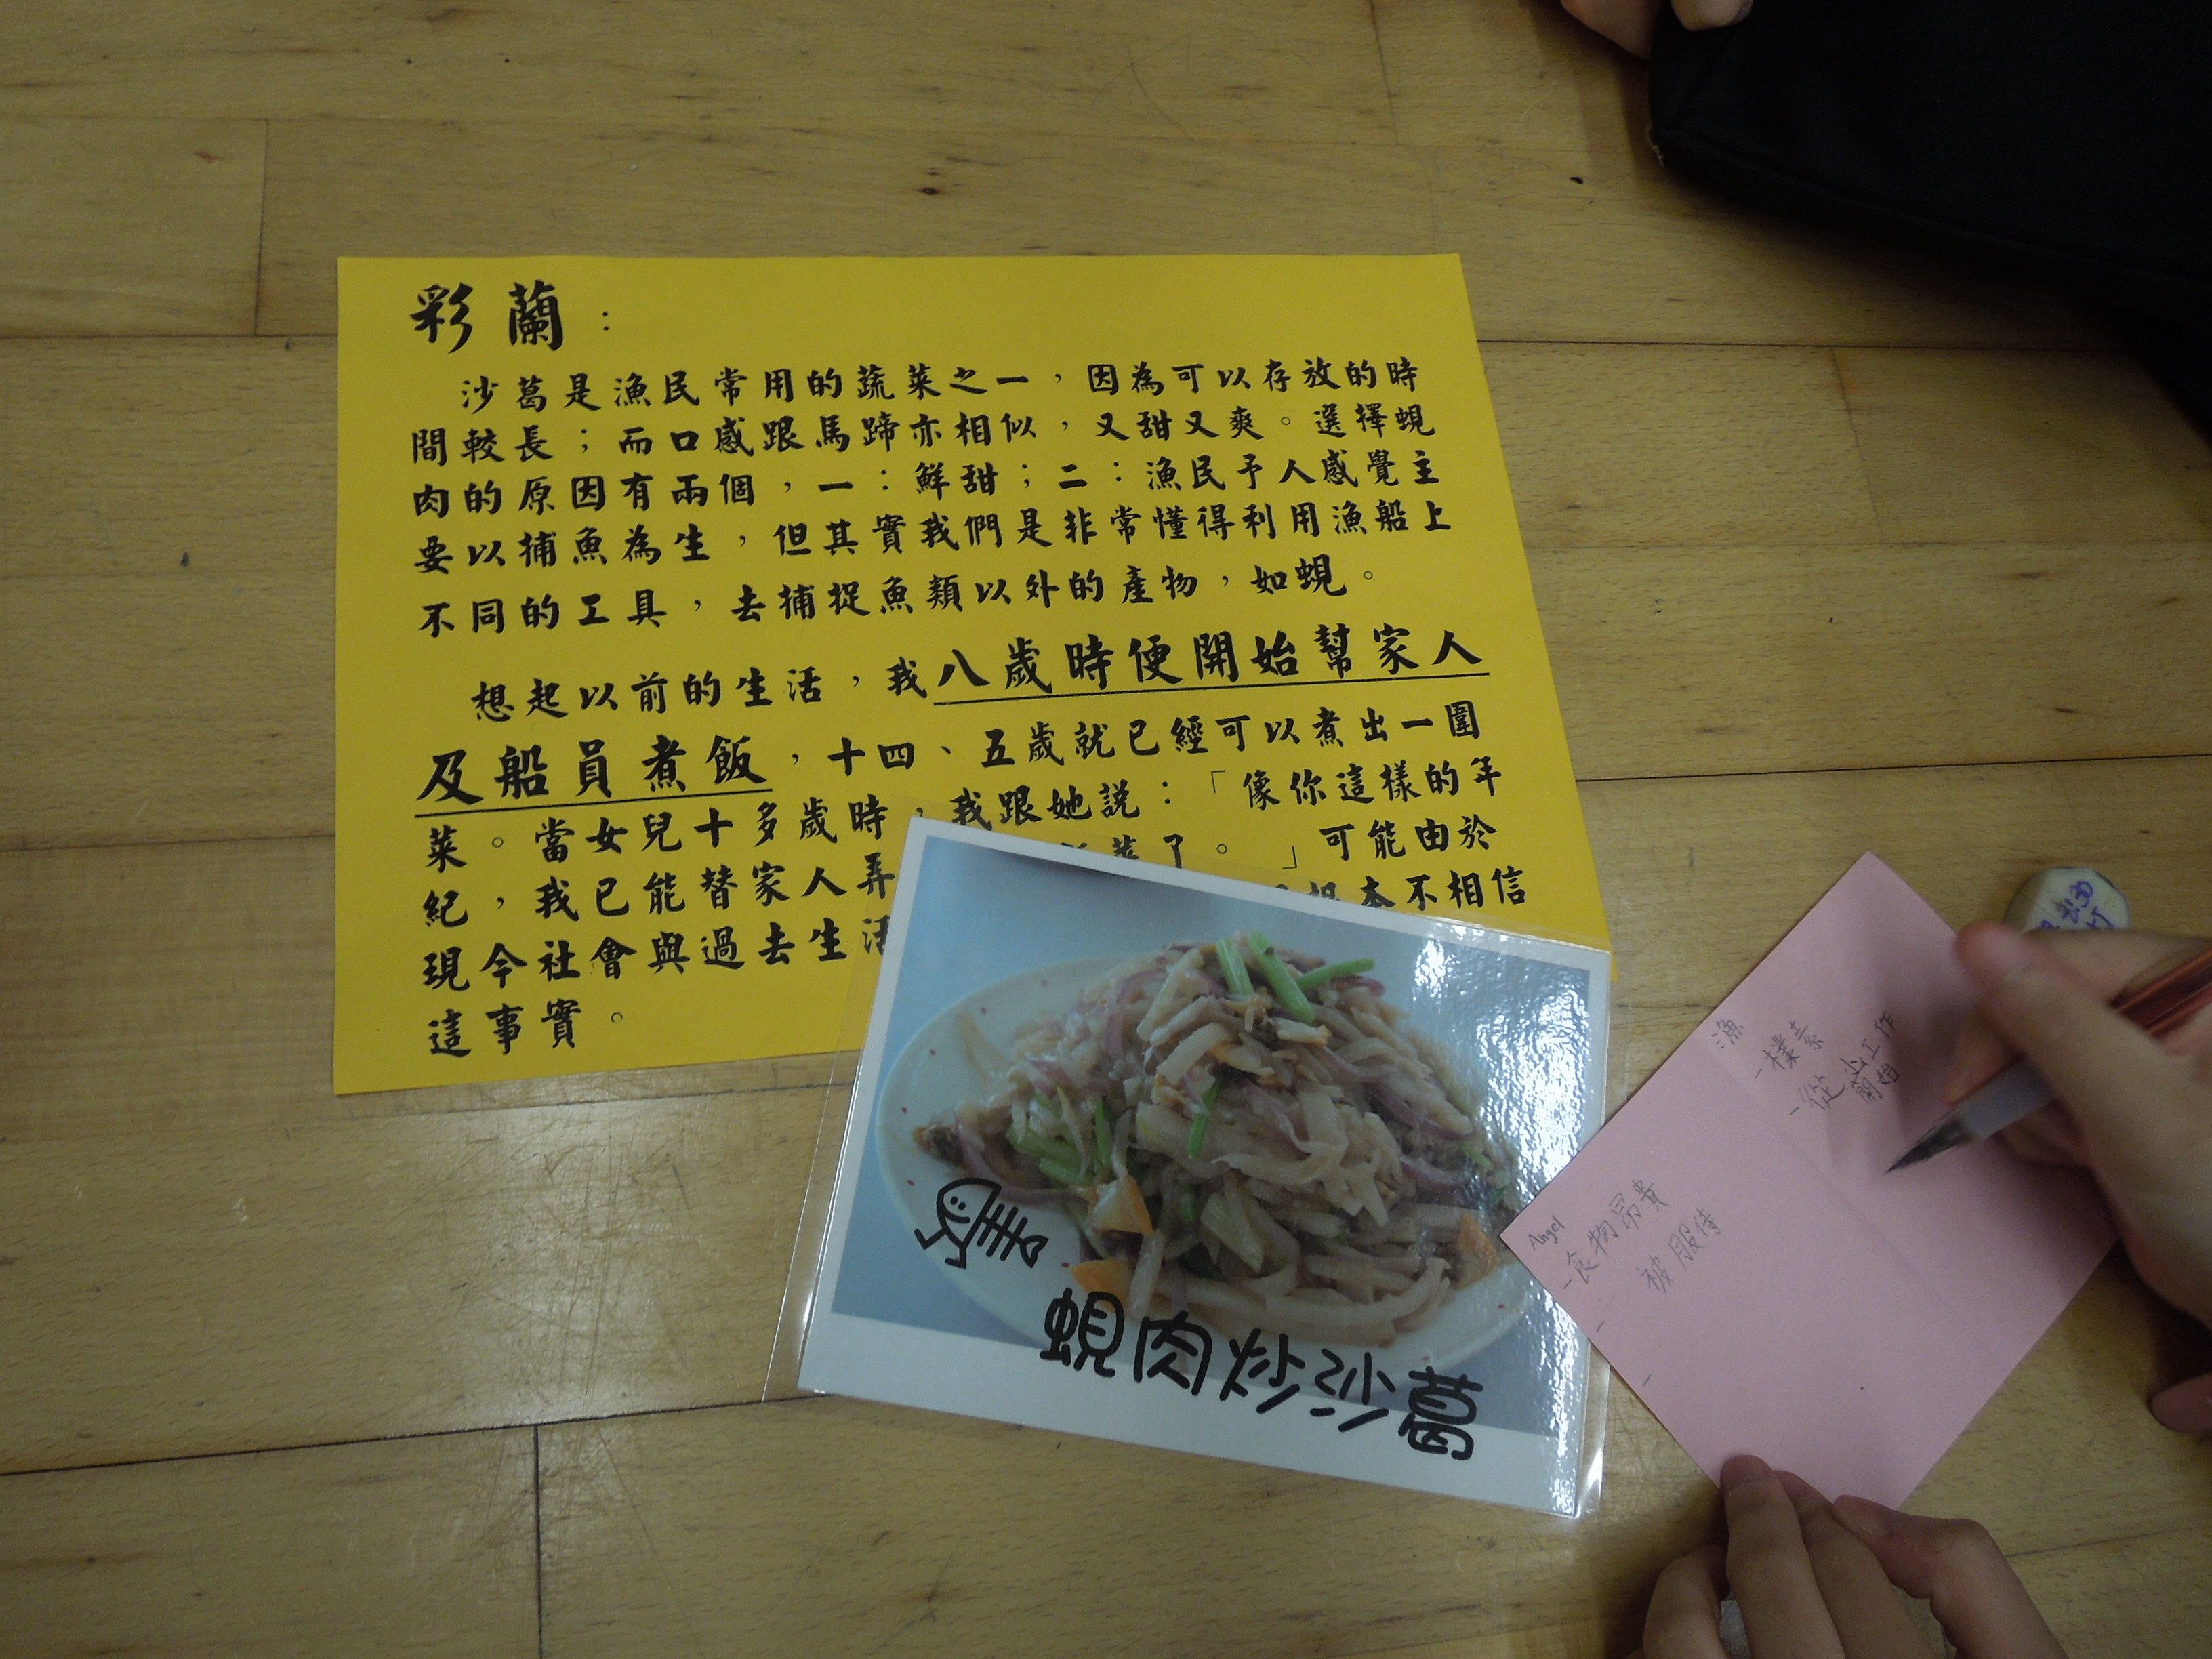 彩蘭：
沙葛是漁民常用的蔬菜之一，因為可以存放的時
間較長；而口感跟馬蹄亦相似，又甜又爽。選擇蜆
肉的原因有兩個，一：鮮甜；二：漁民予人感覺主
要以捕魚為生，但其實我們是非常懂得利用漁船上
不同的工具，去捕捉魚類以外的產物，如蜆。
想起以前的生活，我八歲時便開始幫家人
及船員煮飯，十四、五歲就已經可以煮出一圍
菜。當女兒十多歲時，我跟她説：「像你這樣的年
紀，我已能替家人弄 菜了。」可能由於
現今社會與過去生活 根本不相信
這事實。
蜆肉炒沙葛
漁
-樸素
-從小工作
開始
Angel
-食物昂貴
被服侍